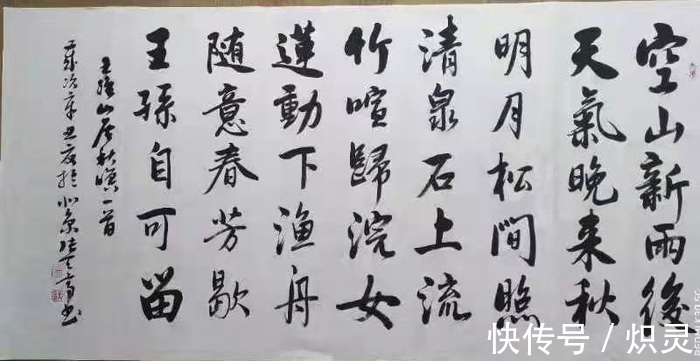 空山新雨後
天氣晚来秋
明月松間照
清泉石土流
竹喧歸浣女
蓮動下渔舟
随意春芳歇
王孫自可留
王維山居秋暝一首
歲次辛丑夏於北京
快传号 / 炽灵